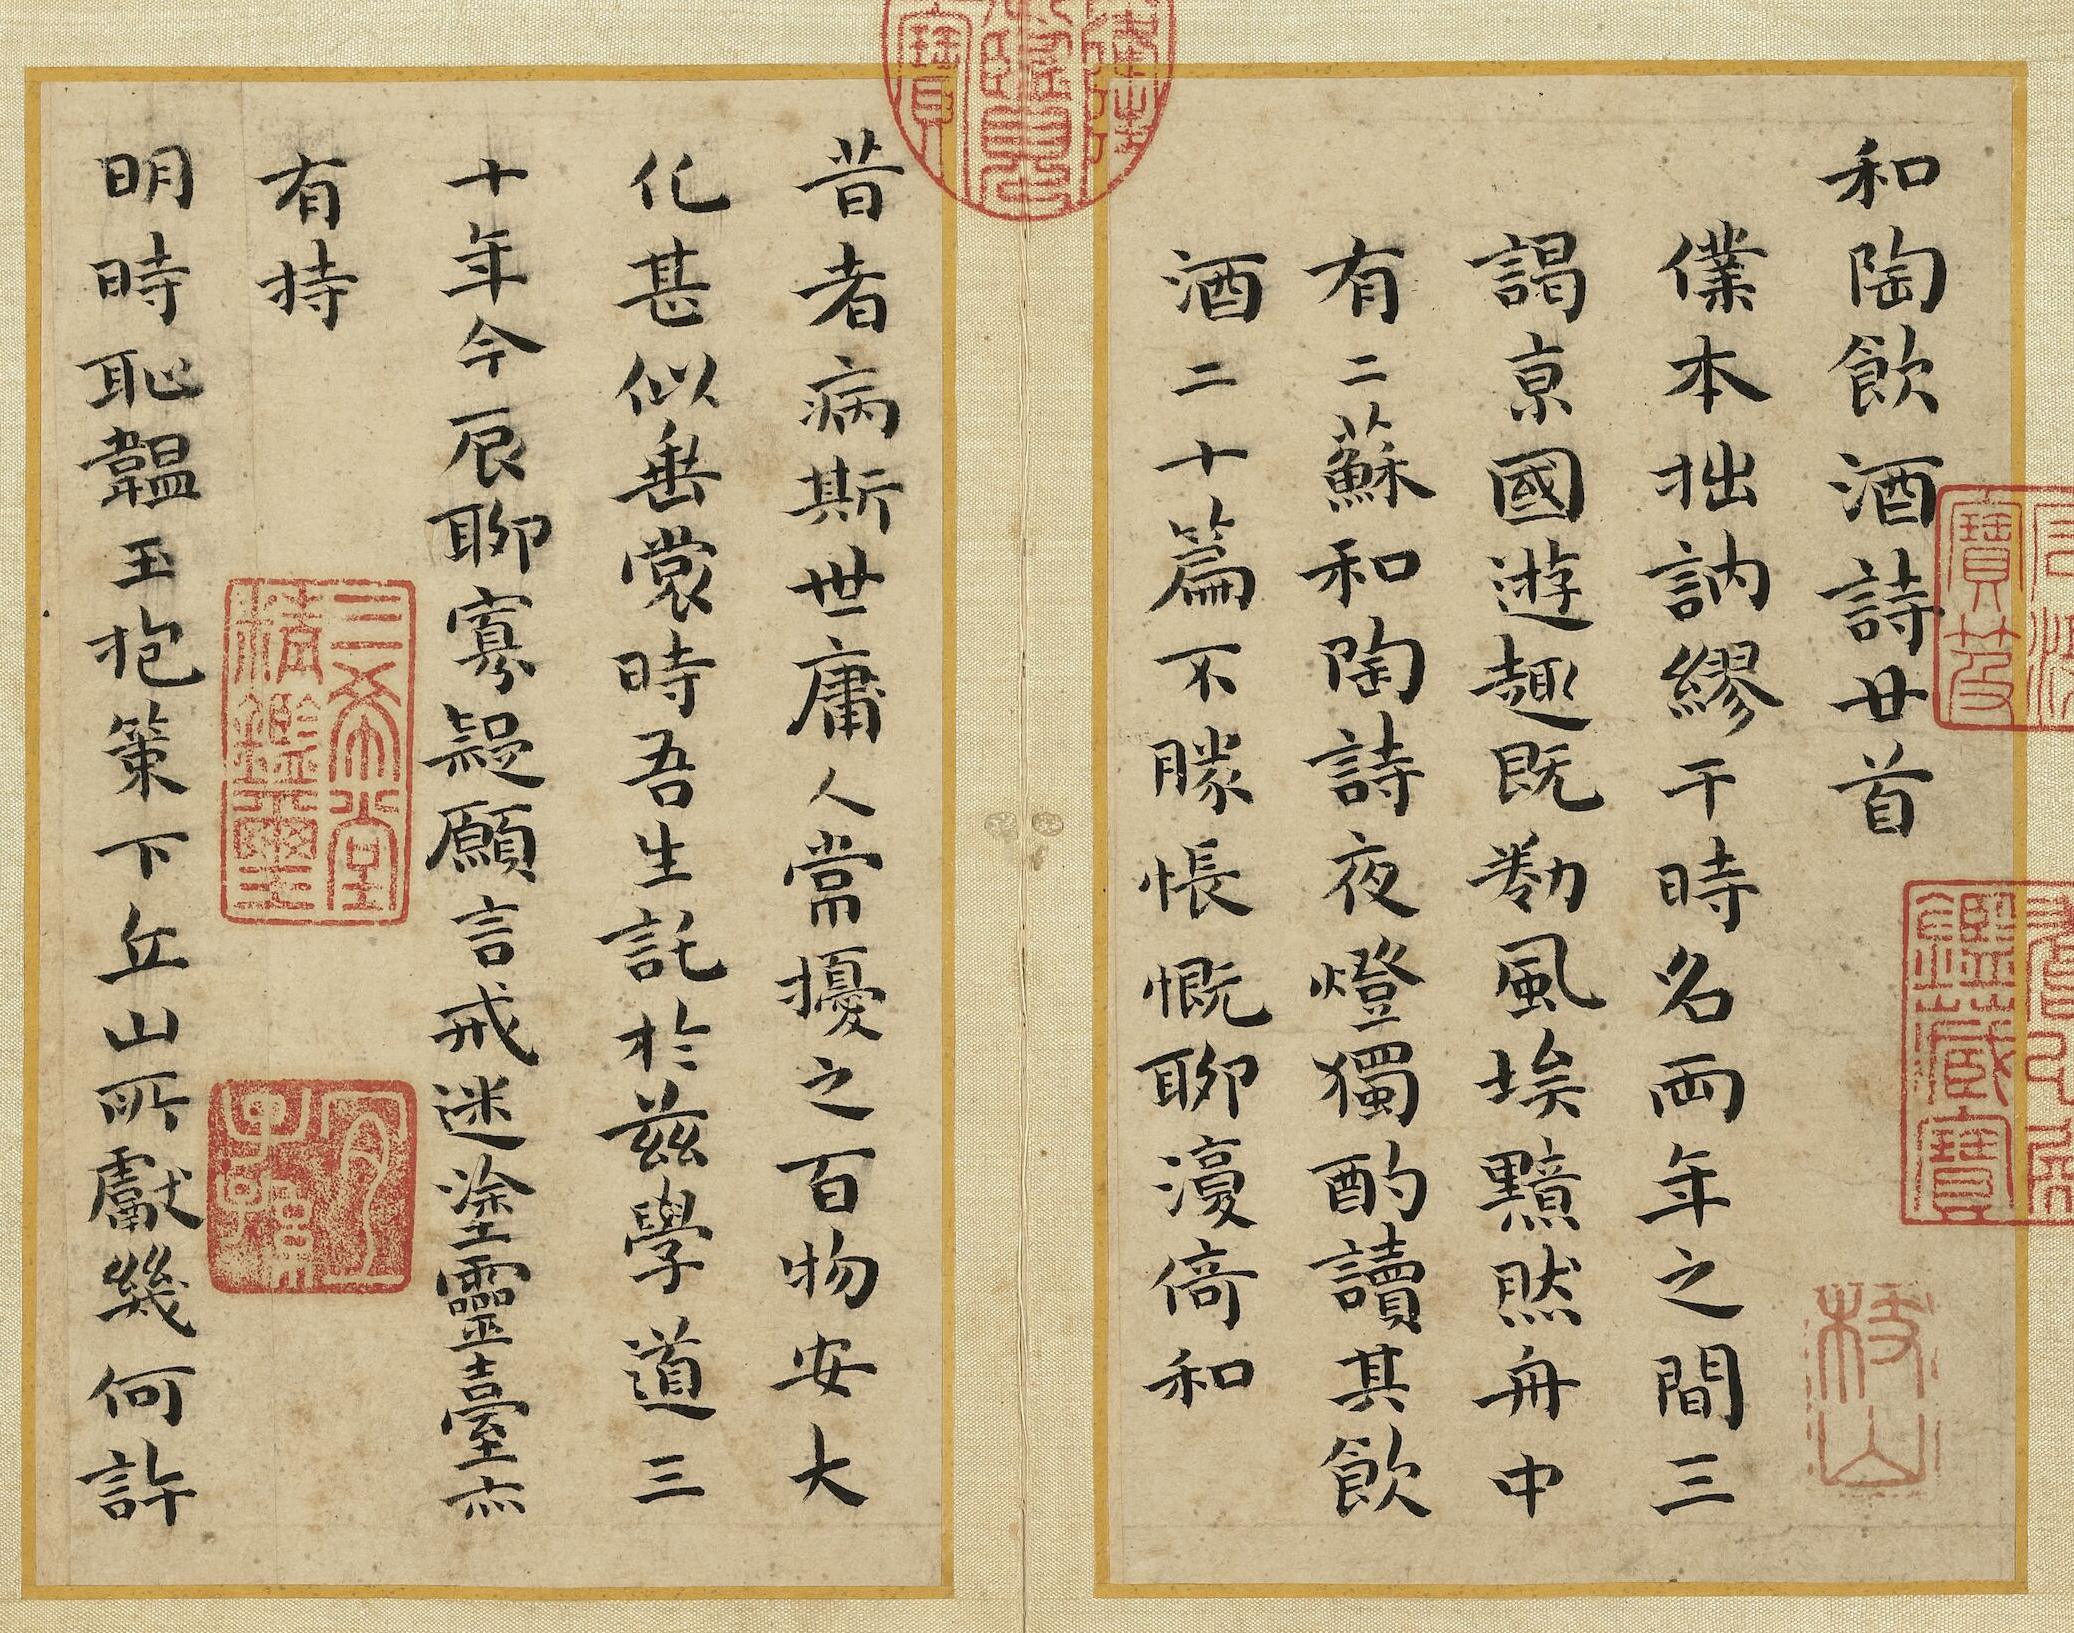 和陶飲酒詩廿首
僕本拙訥繆干時名兩年之間三
謁京國遊趣既勌風埃黯然舟中
有二蘇和陶詩夜燈獨酌讀其飲
酒二十篇不勝悵慨聊濅倚和
昔者病斯世庸人嘗擾之百物安大
化甚似垂裳時吾生託於茲學道三
十年今辰聊寡疑願言戒迷塗靈臺亦
有持
明時恥韞玉抱策下丘山所獻幾何許
三希堂
精鑑璽
枝山